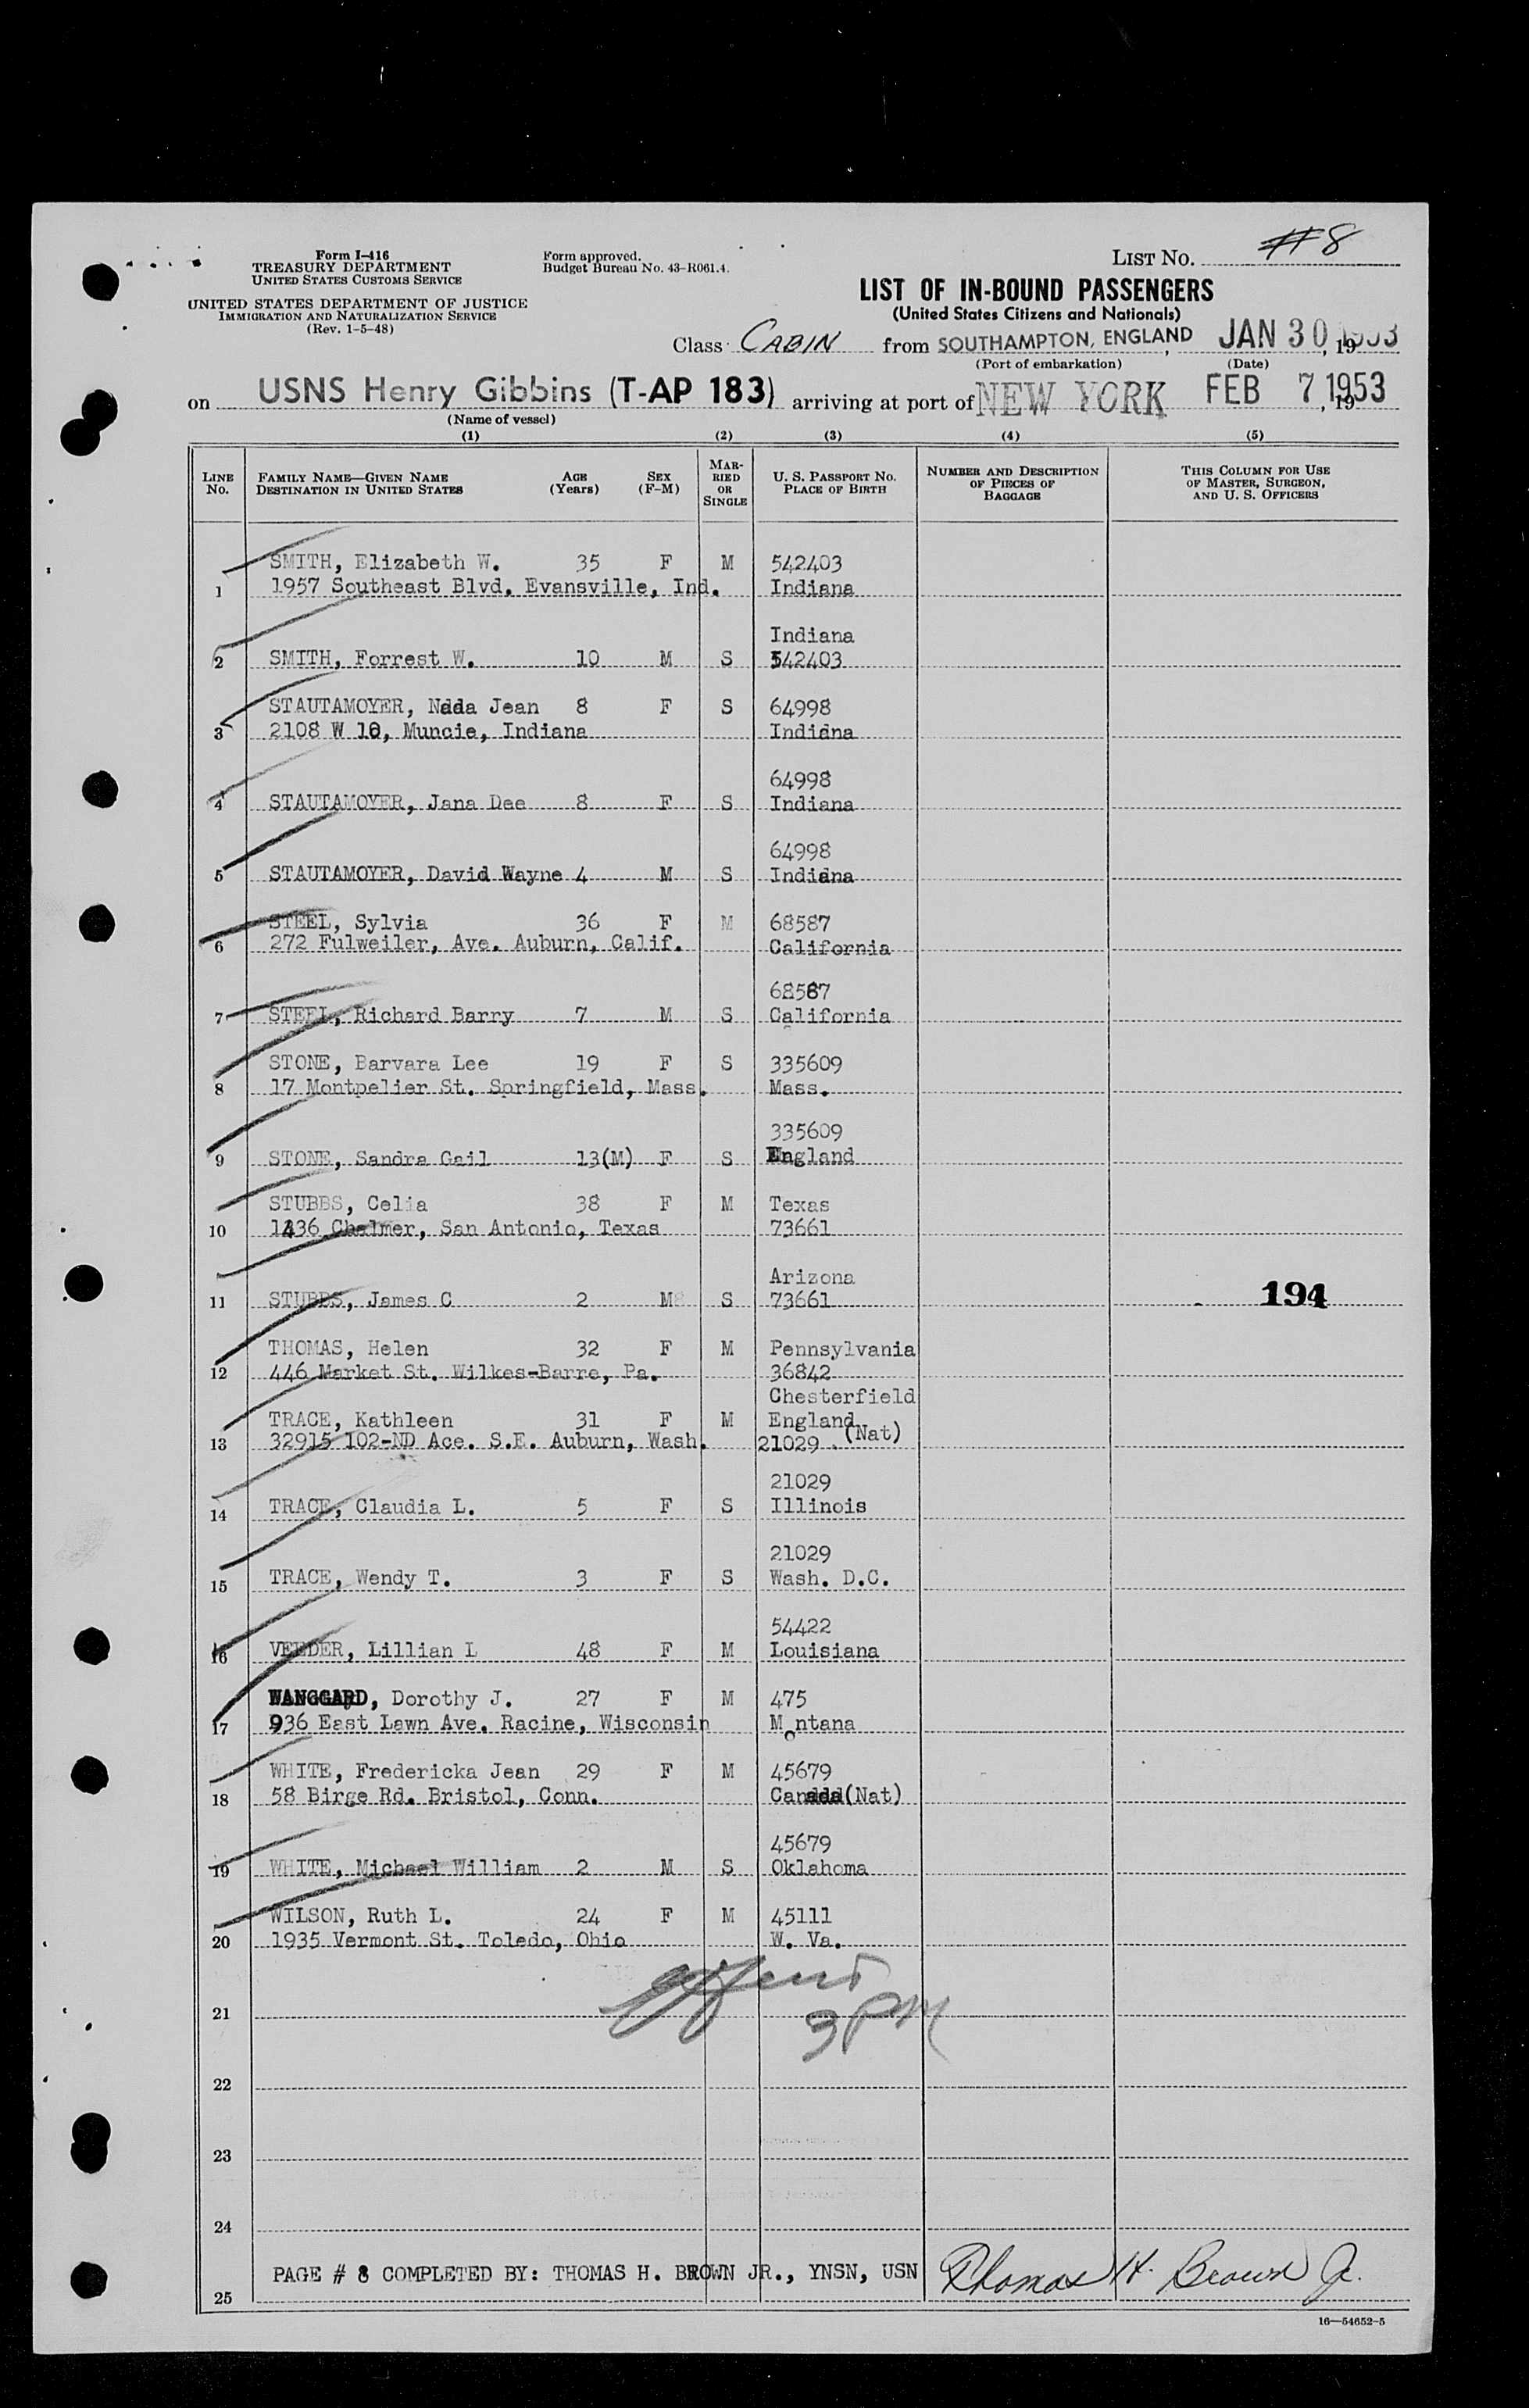 Form I-416
TREASURY DEPARTMENT
UNITED STATES CUSTOMS SERVICE
UNITED STATES DEPARTMENT OF JUSTICE
IMMIGRATION AND NATURALIZATION SERVICE
(Rev. 1-5-48)
Form approved.
Budget Bureau No. 43-R061.4.
LIST No. #8
LIST OF IN-BOUND PASSENGERS
(United States Citizens and Nationals)
Class CABIN from SOUTHAMPTON, ENGLAND, JAN 30, 1953
(Port of embarkation) (Date)
on USNS Henry Gibbins (T-AP 183) arriving at port of NEW YORK FEB 7, 1953
(Name of vessel)
(1) (2) (3) (4) (5)
LINE No. FAMILY NAME—GIVEN NAME DESTINATION IN UNITED STATES AGE (Years) SEX (F-M) MARRIED OR SINGLE U. S. PASSPORT No. PLACE OF BIRTH NUMBER AND DESCRIPTION OF PIECES OF BAGGAGE THIS COLUMN FOR USE OF MASTER, SURGEON, AND U. S. OFFICERS
SMITH, Elizabeth W. 35 F M 542403
1 1957 Southeast Blvd. Evansville, Ind. Indiana
Indiana
2 SMITH, Forrest W. 10 M S 542403
STAUTAMOYER, Nada Jean 8 F S 64998
3 2108 W 10, Muncie, Indiana Indiana
64998
4 STAUTAMOYER, Jana Dee 8 F S Indiana
64998
5 STAUTAMOYER, David Wayne 4 M S Indiana
STEEL, Sylvia 36 F M 68587
6 272 Fulweiler, Ave. Auburn, Calif. California
68587
7 STEEL, Richard Barry 7 M S California
STONE, Barvara Lee 19 F S 335609
8 17 Montpelier St. Springfield, Mass. Mass.
335609
9 STONE, Sandra Gail 13(M) F S England
STUBBS, Celia 38 F M Texas
10 Chalmer, San Antonio, Texas 73661
Arizona
11 STUBBS, James C 2 M S 73661 194
THOMAS, Helen 32 F M Pennsylvania
12 446 Market St. Wilkes-Barre, Pa. 36842
Chesterfield
TRACE, Kathleen 31 F M England
13 32915 102-ND Ace. S.E. Auburn, Wash. 21029 (Nat)
21029
14 TRACE, Claudia L. 5 F S Illinois
21029
15 TRACE, Wendy T. 3 F S Wash. D.C.
54422
16 VEEDER, Lillian L 48 F M Louisiana
WANGGARD, Dorothy J. 27 F M 475
17 936 East Lawn Ave. Racine, Wisconsin Montana
WHITE, Fredericka Jean 29 F M 45679
18 58 Birge Rd. Bristol, Conn. Canada(Nat)
45679
19 WHITE, Michael William 2 M S Oklahoma
WILSON, Ruth L. 24 F M 45111
20 1935 Vermont St. Toledo, Ohio W. Va.
3 PM
21
22
23
24
PAGE # 8 COMPLETED BY: THOMAS H. BROWN JR., YNSN, USN Thomas H. Brown Jr.
25
16—54652-5